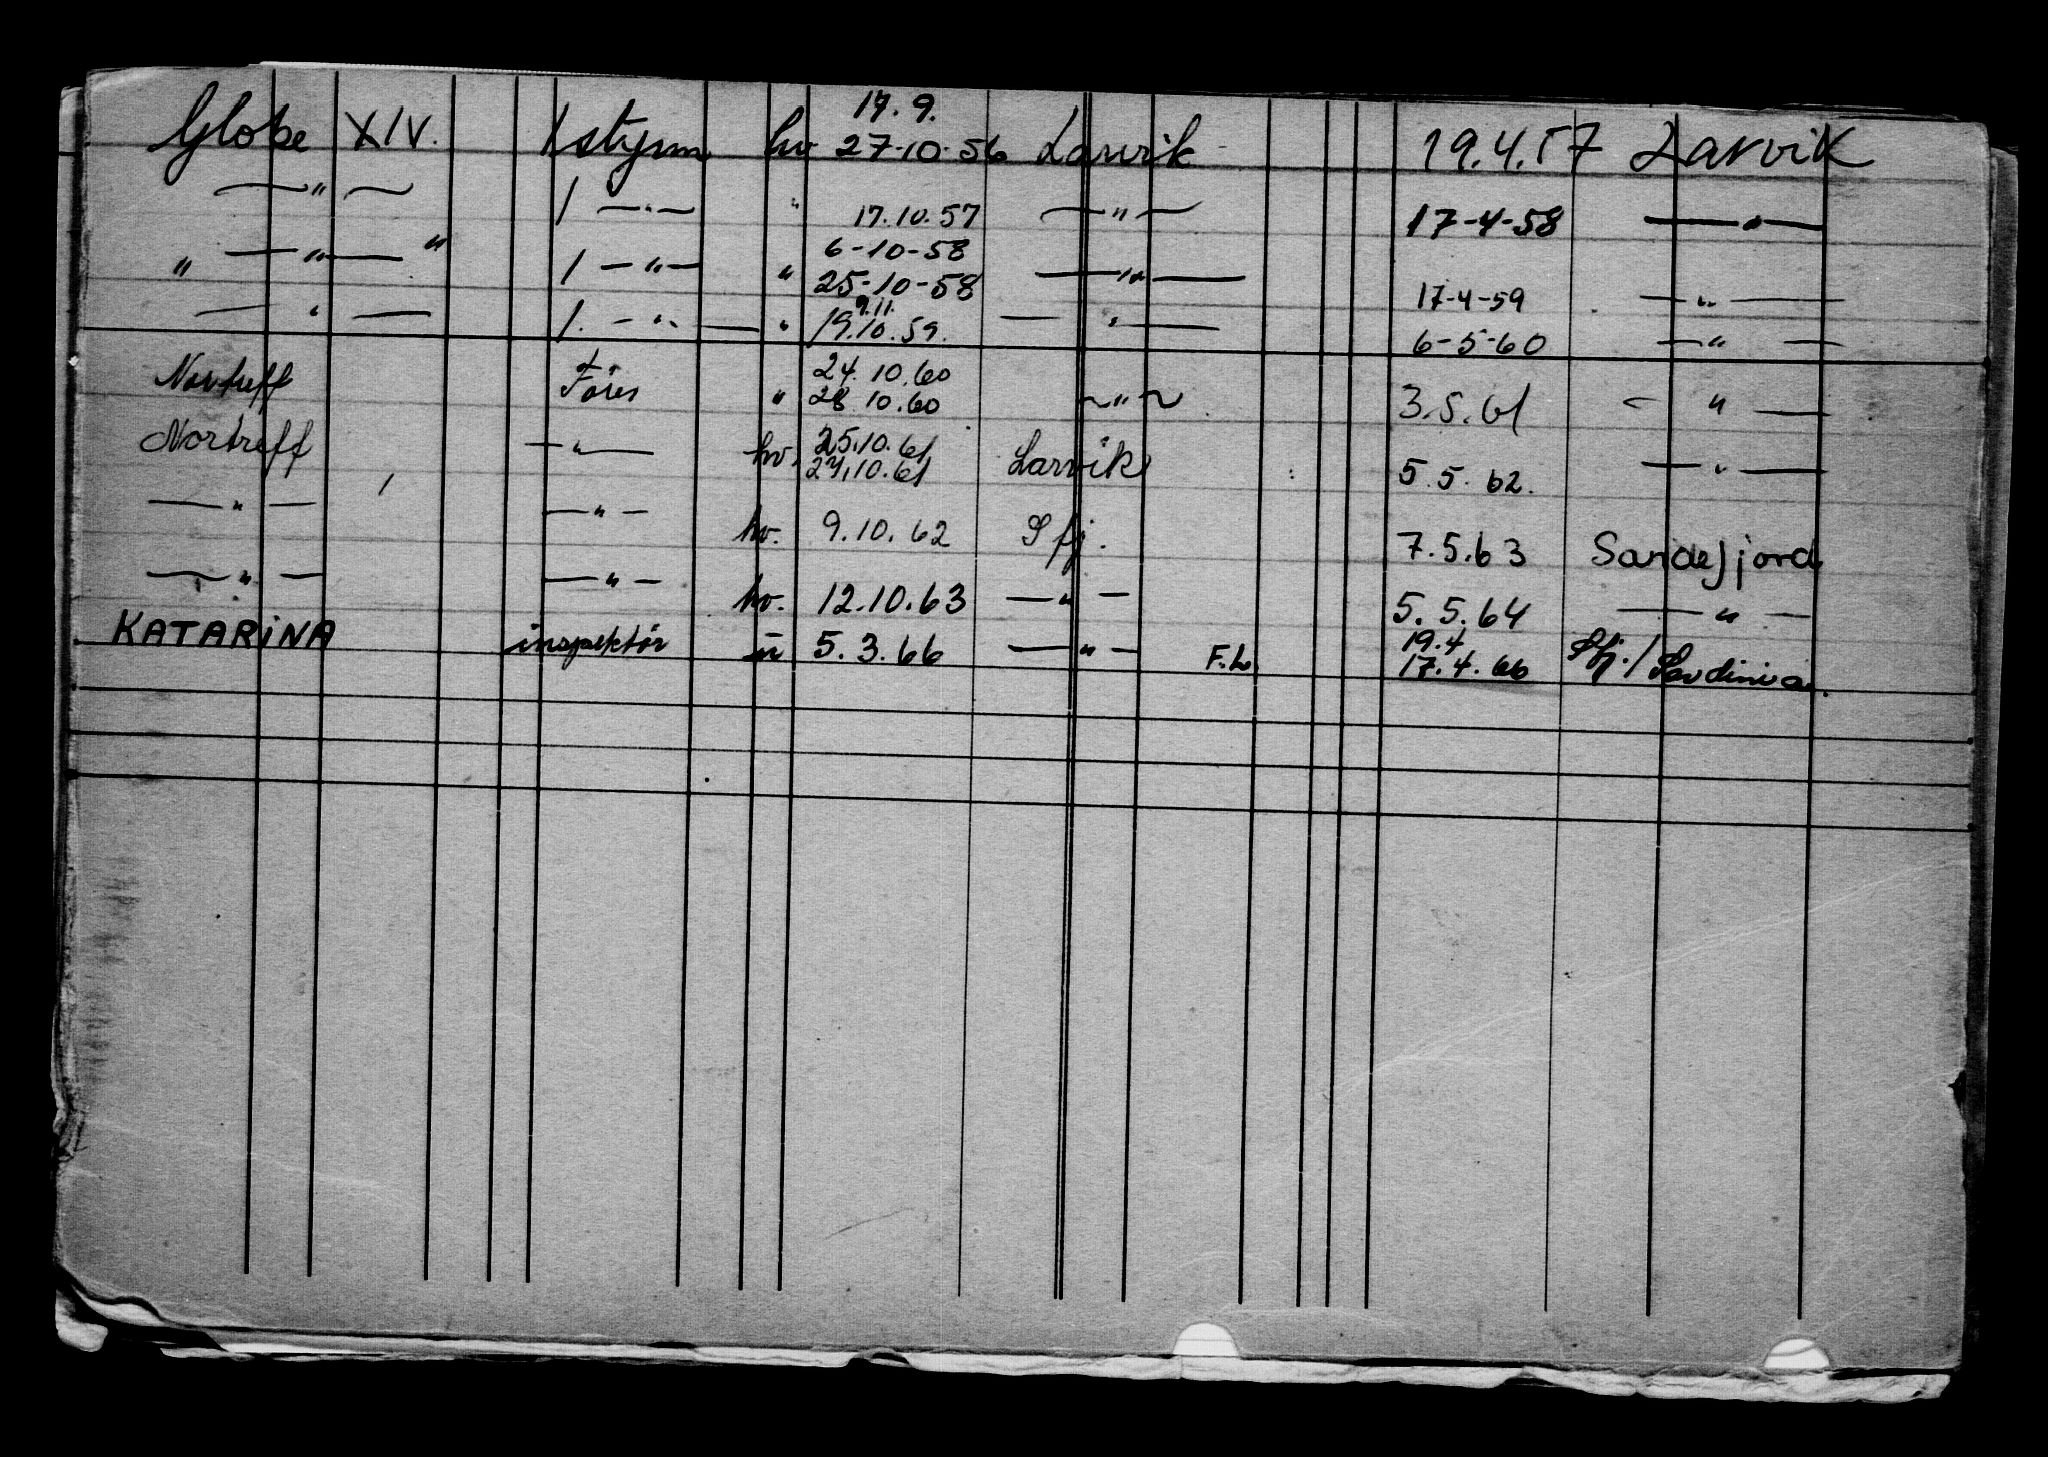 17. 9.
Globe XIV. 1 styrm hv 27-10-56 Larvik 19.4.57 Larvik
— " — 1 — " — " 17.10.57 — " — 17-4-58 — " —
6-10-58
" — " — " 1 — " — " 25-10-58 — " — 17-4-59 — " —
9.11.
— " — 1. — " — " 19.10.59. — " — 6-5-60 — " —
24.10.60
Nortreff " 28.10.60 — " — 3.5.61 — " —
25.10.61
Nortreff — " — hv. 27.10.61 Larvik 5.5.62. — " —
— " — — " — hv. 9.10.62 Sfj. 7.5.63 Sandefjord
— " — — " — hv. 12.10.63 — " — 5.5.64 — " —
19.4
KATARINA inspektör u 5.3.66 — " — F.h 17.4.66 Sfj./Sardinia.